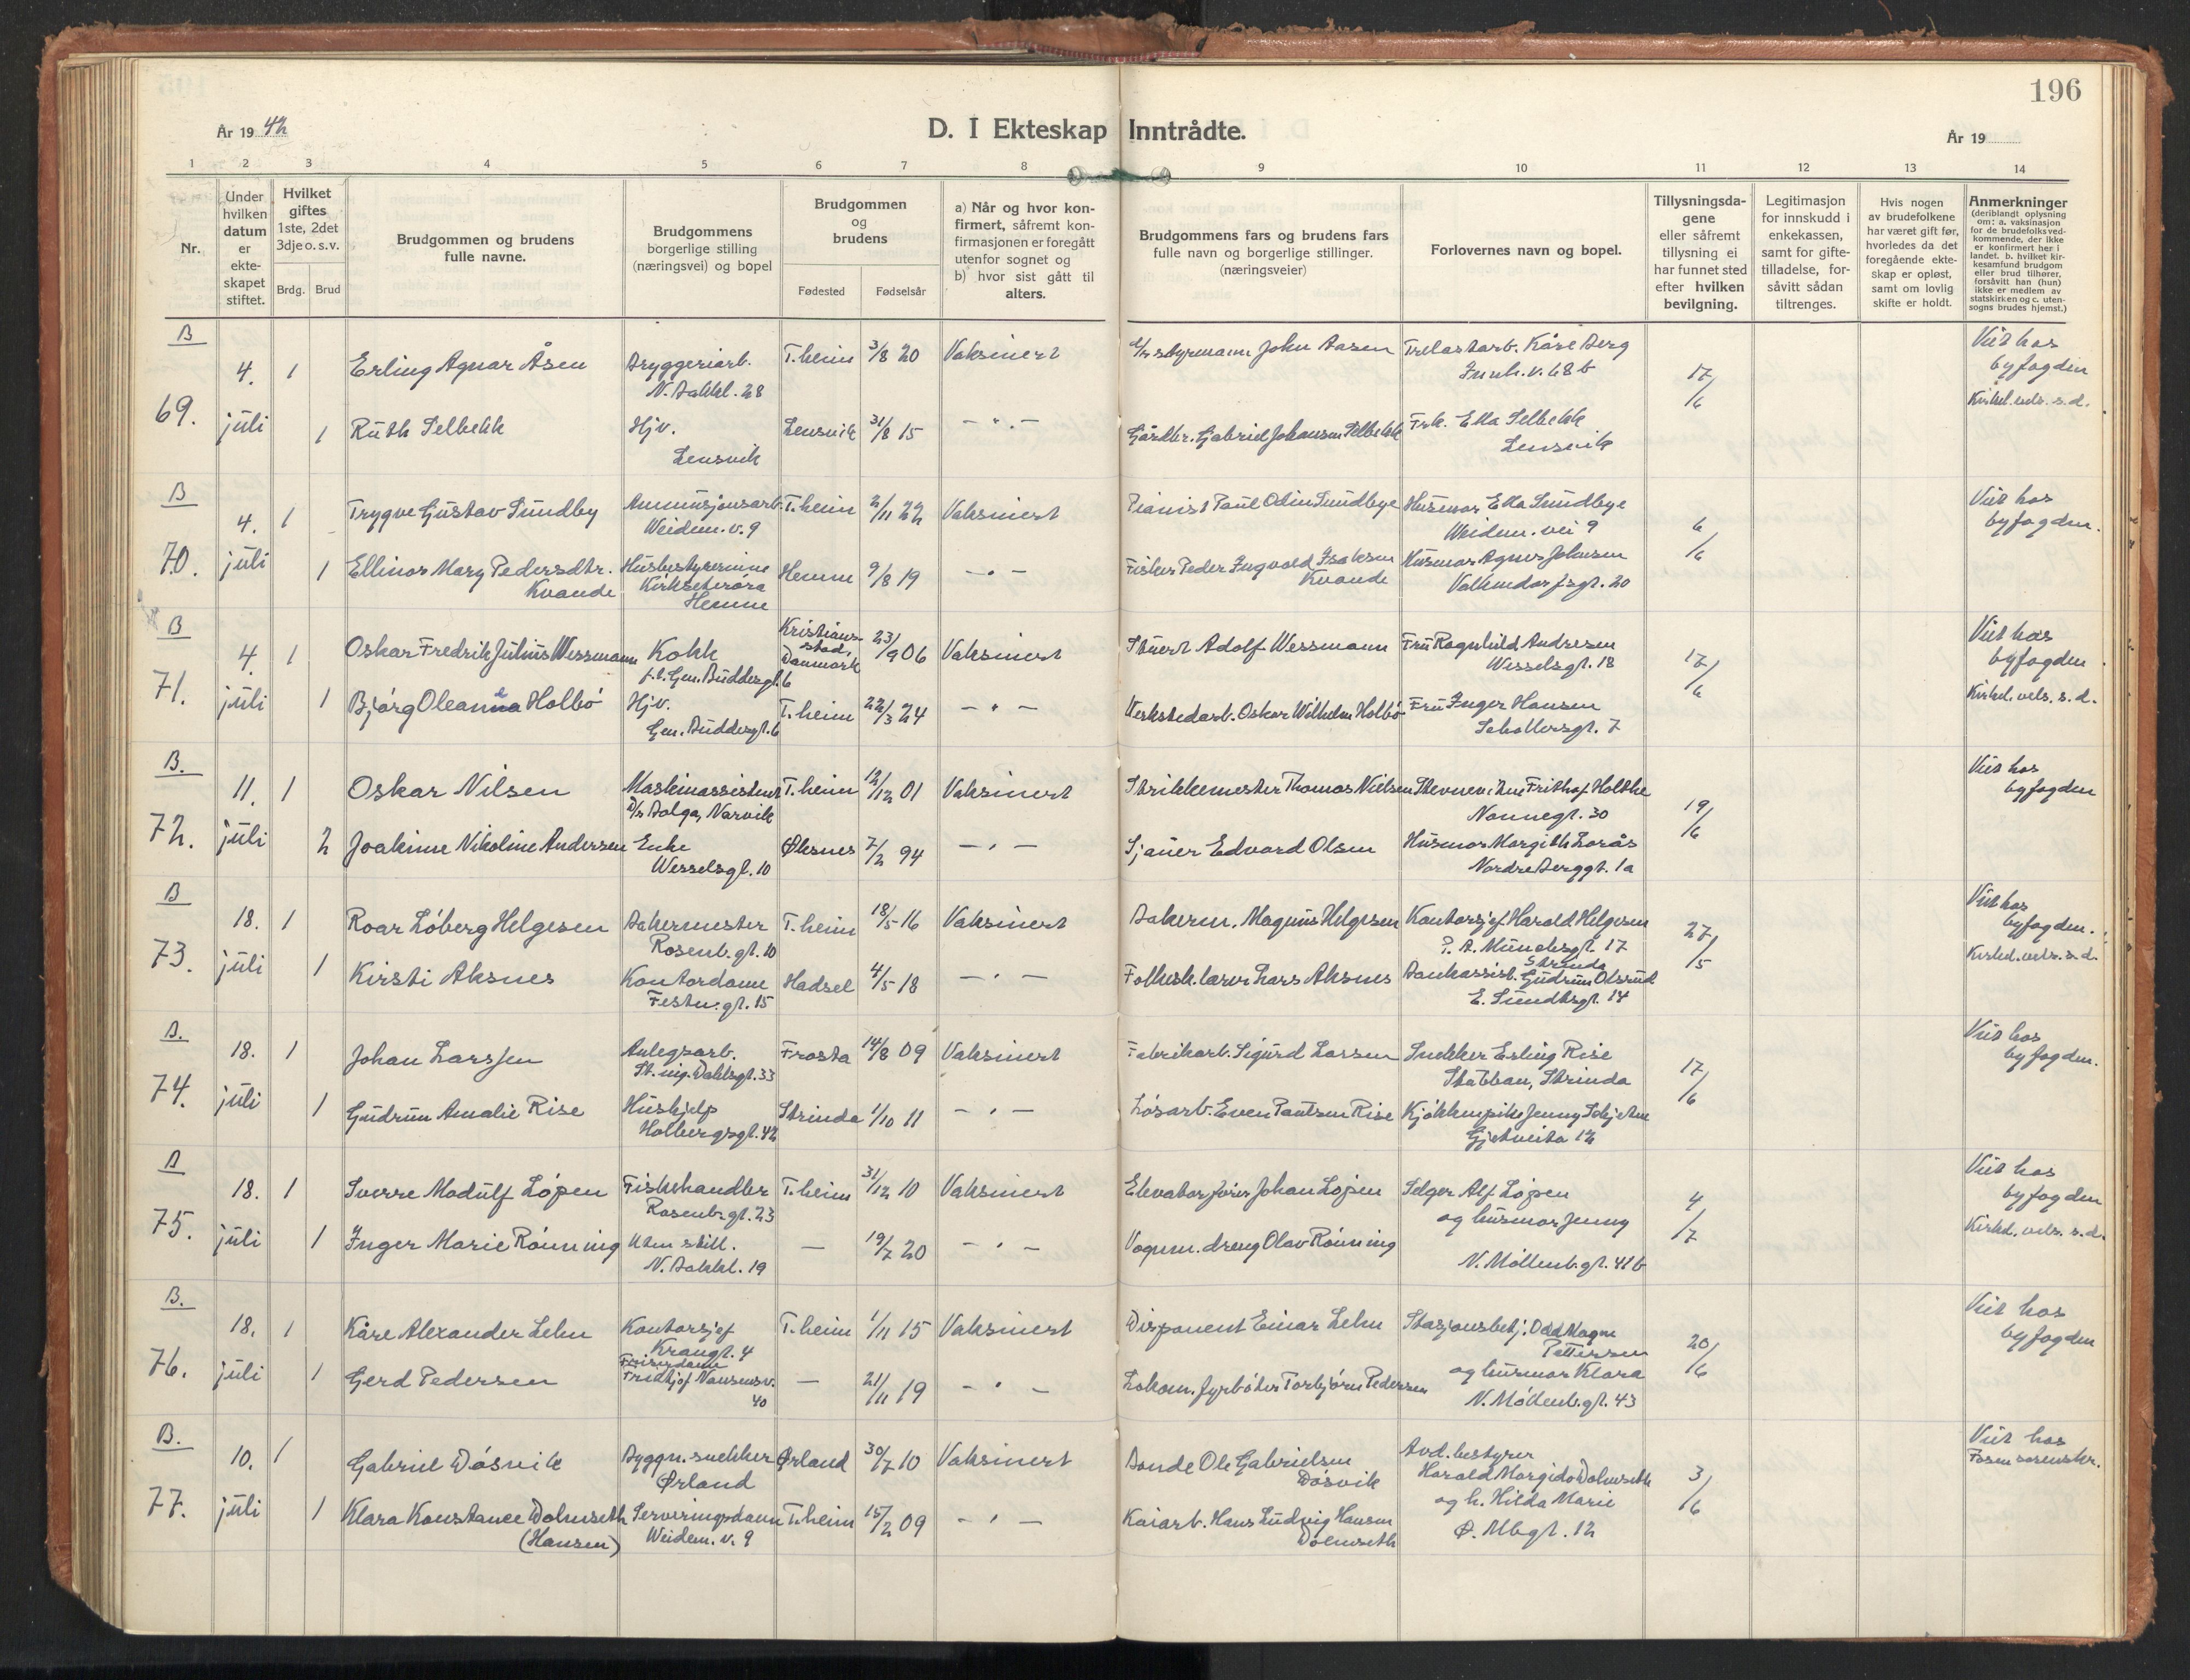 196
År 19 42
D. I Ekteskap Inntrådte.
År 19
1 2 3 4 5 6 7 8 9 10 11 12 13 14
Nr.
Under hvilken datum er ekteskapet stiftet.
Hvilket giftes 1ste, 2det 3dje o. s. v.
Brdg. Brud
Brudgommen og brudens fulle navne.
Brudgommens borgerlige stilling (næringsvei) og bopel
Brudgommen og brudens
Fødested Fødselsår
a) Når og hvor konfirmert, såfremt konfirmasjonen er foregått utenfor sognet og b) hvor sist gått til alters.
Brudgommens fars og brudens fars fulle navn og borgerlige stillinger. (næringsveier)
Forlovernes navn og bopel.
Tillysningsdagene eller såfremt tillysning ei har funnet sted efter hvilken bevilgning.
Legitimasjon for innskudd i enkekassen, samt for giftetilladelse, forsåvitt sådan tiltrenges.
Hvis nogen av brudefolkene har været gift før, hvorledes da det foregående ekteskap er opløst, samt om lovlig skifte er holdt.
Anmerkninger (deriblandt oplysning om: a. vaksinasjon for de brudefolksvedkommende, der ikke er konfirmert her i landet. b. hvilket kirkesamfund brudgom eller brud tilhører, forsåvitt han (hun) ikke er medlem av statskirken og c. utensogns brudes hjemst.)
B
69. 4. juli 1 Erling Agnar Åsen Bryggeriarb. T.heim 3/8 20 Vaksinert styrmann John Aasen Trelastarb. Kåre Berg 17/6 Viet hos
N. Bakkl. 28 Innh.v. 68 b byfogden
1 Ruth Selbekk Hjv. Lensvik 31/8 15 - " - Gårdbr. Gabriel Johansen Selbekk Frk. Ella Selbekk Kirkel. vels. s.d.
Lensvik Lensvik
B
70. 4. juli 1 Trygve Gustav Sundby Ammusjonsarb. T.heim 2/11 22 Vaksinert Pianist Paul Odin Sundbye Husmor Ella Sundbye 6/6 Viet hos
Weidem. v. 9 Weidem. vei 9 byfogden.
1 Ellinor Mary Pedersdtr. Husbestyrerinne Hemne 9/8 19 - " - Fisker Peder Ingvald Isaksen Husmor Agnes Johnsen
Kvande Kirksæterøra Kvande Valkendorfsgt. 20
Hemne
B
71. 4. juli 1 Oskar Fredrik Julius Wessmann Kokk Kristiansstad, Danmark 23/9 06 Vaksinert Stuert Adolf Wessmann Fru Ragnhild Andresen 17/6 Viet hos
f.t. Gen. Buddesgt. 6 Wesselsgt. 18 byfogden
1 Bjørg Oleanna Holbø Hjv. T.heim 22/3 24 - " - Verkstedarb. Oskar Wilhelm Holbø Fru Inger Hansen Kirkel. vels. s.d.
Gen. Buddesgt. 6 Schøllersgt. 7
B.
72. 11. juli 1 Oskar Nilsen Maskinassistent T.heim 12/12 01 Vaksinert Strikkemester Thomas Nielsen Stevnev. Frithof Holthe 19/6 Viet hos
D/s Bolga, Narvik Nonnegt. 30 byfogden
2 Joakime Nikoline Andersen Enke Øksnes 7/2 94 - " - Sjauer Edvard Olsen Husmor Margith Lorås
Wesselsgt. 10 Nordre Berggt. 1a
B
73. 18. juli 1 Roar Løberg Helgesen Bakermester T.heim 18/5 16 Vaksinert Bakerm. Magnus Helgesen Kontorsjef Harald Helgesen 27/5 Viet hos
Rosenb. gt. 10 P. A. Munchsgt. 17 byfogden.
Strinda
1 Kirsti Aksnes Kontordame Hadsel 4/5 18 - " - Folkesk. lærer Lars Aksnes Bankassist. Gudrun Olsrud Kirkel. vels. s.d.
Festn. gt. 15 E. Sundtsgt. 14
B.
74. 18. juli 1 Johan Larssen Anlegsarb. Frosta 14/8 09 Vaksinert Fabrikarb. Sigurd Larsen Snekker Erling Rise 17/6 Viet hos
St. ing. Dahlsgt. 33 Stubban, Strinda byfogden.
1 Gudrun Amalie Rise Hushjelp Strinda 1/10 11 - " - Løsarb. Even Paulsen Rise Kjøkkenpike Jenny Schjetne
Holbergsgt. 42 Gjetveita 12
B
75. 18. juli 1 Sverre Modulf Løpen Fiskehandler T.heim 31/12 10 Vaksinert Elevatorfører Johan Løpen Selger Alf Løpen 4/7 Viet hos
Rosenb. gt. 23 og husmor Jenny byfogden
1 Inger Marie Rønning Uten still. — 19/7 20 - " - Vognm. dreng Olav Rønning Kirkel. vels. s.d.
N. Bakkl. 19 N. Møllenb. gt. 41 b
B.
76. 18. juli 1 Kåre Alexander Lehn Kontorsjef T.heim 1/11 15 Vaksinert Disponent Einar Lehn Stasjonsbetj. Odd Magne 20/6 Viet hos
Krangt. 4 Pettersen byfogden
Frisørdame
1 Gerd Pedersen Fridtjof Nansensv. — 21/11 19 - " - Lokom. fyrbøter Torbjørn Pedersen og husmor Klara
40 N. Møllenb. gt. 43
B.
77. 10. juli 1 Gabriel Døsvik Byggn. snekker Ørland 30/7 10 Vaksinert Bonde Ole Gabrielsen Avd. bestyrer 3/6 Viet hos
Ørland Døsvik Harald Margido Dolmseth Fosen sorenskr.
og h. Hilda Marie
1 Klara Konstance Dolmseth Serveringsdame T.heim 15/2 09 - " - Kaiarb. Hans Ludvig Hansen Ø. Mbgt. 12
(Hansen) Weidem. v. 9 Dolmseth